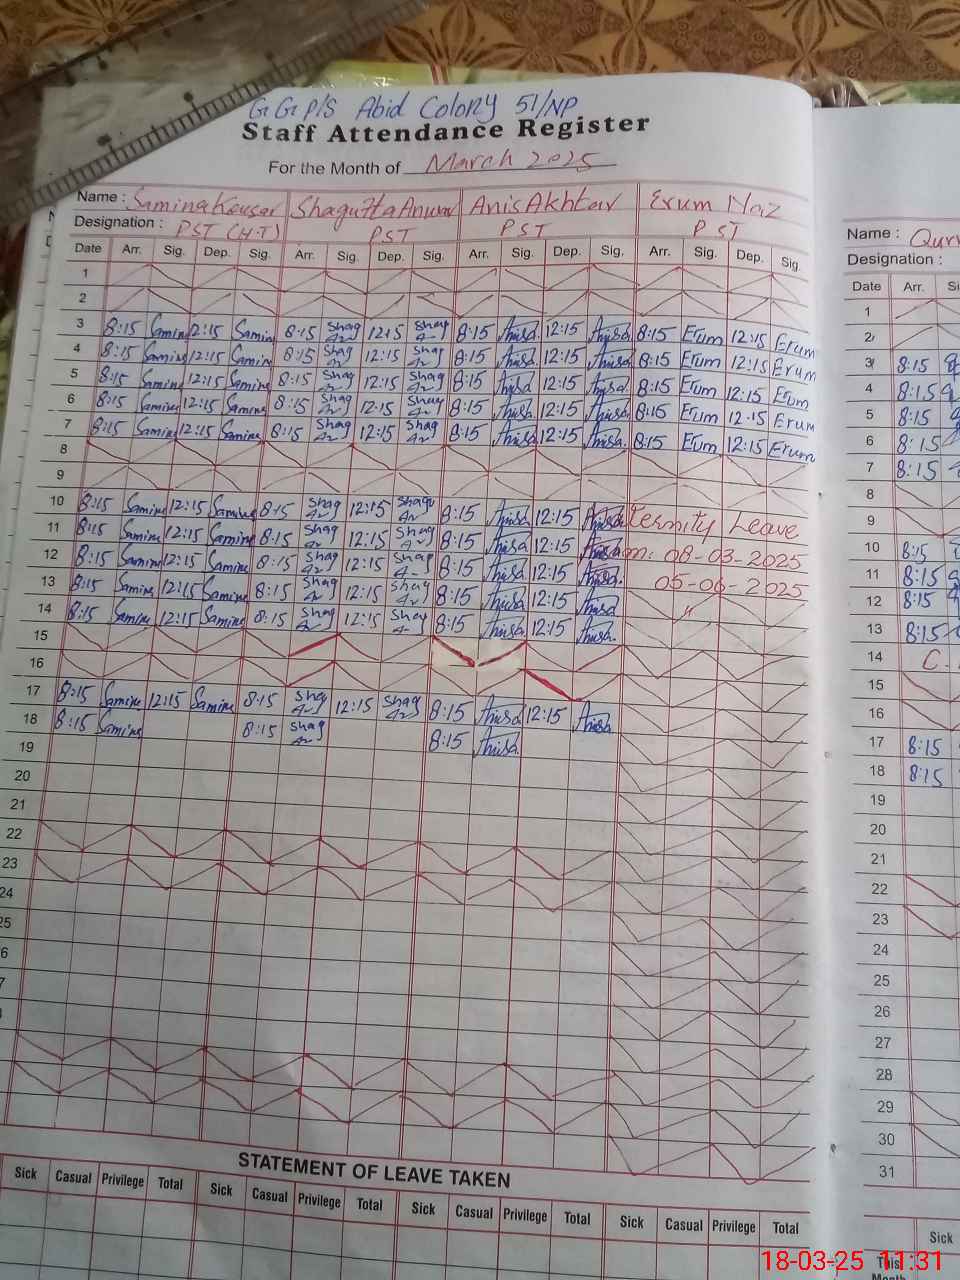 G.G.P/S Abid Colony 51/NP
Staff Attendance Register
For the Month of March 2025
Name : Samina Kousar Shagufta Anwar Anis Akhtar Erum Naz
Designation : PST (H.T) PST PST PST
Date Arr. Sig. Dep. Sig. Arr. Sig. Dep. Sig. Arr. Sig. Dep. Sig. Arr. Sig. Dep. Sig.
1
2
3 8:15 Samina 12:15 Samina 8:15 Shag 12:15 Shag 8:15 Anisa 12:15 Anisa 8:15 Erum 12:15 Erum
4 8:15 Samina 12:15 Samina 8:15 Shag 12:15 Shag 8:15 Anisa 12:15 Anisa 8:15 Erum 12:15 Erum
5 8:15 Samina 12:15 Samina 8:15 Shag 12:15 Shag 8:15 Anisa 12:15 Anisa 8:15 Erum 12:15 Erum
6 8:15 Samina 12:15 Samina 8:15 Shag 12:15 Shag 8:15 Anisa 12:15 Anisa 8:15 Erum 12:15 Erum
7 8:15 Samina 12:15 Samina 8:15 Shag 12:15 Shag 8:15 Anisa 12:15 Anisa 8:15 Erum 12:15 Erum
8
9
10 8:15 Samina 12:15 Samina 8:15 Shag 12:15 Shagu 8:15 Anisa 12:15 Anisa ternity Leave
11 8:15 Samina 12:15 Samina 8:15 Shag 12:15 Shag 8:15 Anisa 12:15 Anisa m: 08-03-2025
12 8:15 Samina 12:15 Samina 8:15 Shag 12:15 Shag 8:15 Anisa 12:15 Anisa 05-06-2025
13 8:15 Samina 12:15 Samina 8:15 Shag 12:15 Shag 8:15 Anisa 12:15 Anisa "
14 8:15 Samina 12:15 Samina 8:15 Shag 12:15 Shag 8:15 Anisa 12:15 Anisa
15
16
17 8:15 Samina 12:15 Samina 8:15 Shag 12:15 Shag 8:15 Anisa 12:15 Anisa
18 8:15 Samina 8:15 Shag 8:15 Anisa
19
20
21
22
23
24
25
6
7
STATEMENT OF LEAVE TAKEN
Sick Casual Privilege Total Sick Casual Privilege Total Sick Casual Privilege Total Sick Casual Privilege Total
Name :
Designation :
Date Arr.
1
2
3 8:15
4 8:15
5 8:15
6 8:15
7 8:15
8
9
10 8:15
11 8:15
12 8:15
13 8:15
14 C.
15
16
17 8:15
18 8:15
19
20
21
22
23
24
25
26
27
28
29
30
31
Sick
This
Month
18-03-25 11:31